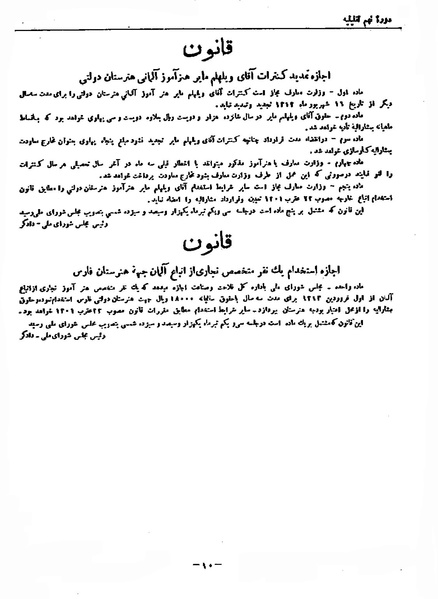 دورهٔ نهم تقنینیه
قانون
اجازه تمدید کنترات آقای ویلهلم مایر هنرآموز آلمانی هنرستان دولتی
ماده اول - وزارت معارف مجاز است کنترات آقای ویلهلم مایر هنر آموز آلمانی هنرستان دولتی را برای مدت سه سال
دیگر از تاریخ ۱۱ شهریور ماه ۱۳۱۳ تجدید و تمدید نماید.
ماده دوم - حقوق آقای ویلهلم مایر در سال شانزده هزار و دویست ریال بعلاوه دویست و سی پهلوی خواهد بود که باقساط
ماهیانه بمشارالیه تأدیه خواهد شد.
ماده سوم - در انقضاء مدت قرارداد چنانچه کنترات آقای ویلهلم مایر تجدید نشود مبلغ پنجاه پهلوی بعنوان مخارج معاودت
بمشارالیه کارسازی خواهد شد.
ماده چهارم - وزارت معارف یا هنرآموز مذکور میتوانند با اخطار قبلی سه ماه در آخر سال تحصیلی هر سال کنترات
را لغو نمایند در صورتی که این عمل از طرف وزارت معارف بشود مخارج معاودت پرداخت خواهد شد.
ماده پنجم - وزارت معارف مجاز است سایر شرایط استخدام آقای ویلهلم مایر هنرآموز هنرستان دولتی را مطابق قانون
استخدام اتباع خارجه مصوب ۲۳ عقرب ۱۳۰۱ تعیین و قرارداد مشارالیه را امضاء نماید.
این قانون که مشتمل بر پنج ماده است در جلسه سی و یکم تیر ماه یکهزار و سیصد و سیزده شمسی بتصویب مجلس شورای ملی رسید
رئیس مجلس شورای ملی - دادگر
قانون
اجازه استخدام یک نفر متخصص نجاری از اتباع آلمان جهة هنرستان فارس
ماده واحده - مجلس شورای ملی باداره کل فلاحت و صناعت اجازه میدهد که یک نفر متخصص هنر آموز نجاری از اتباع
آلمان از اول فروردین ۱۳۱۳ برای مدت سه سال با حقوق سالیانه ۱۸۰۰۰ ریال جهت هنرستان دولتی فارس استخدام نموده و حقوق
مشارالیه را از محل اعتبار بودجه هنرستان بپردازد - سایر شرایط استخدام مطابق مقررات قانون مصوب ۲۳ عقرب ۱۳۰۱ خواهد بود.
این قانون که مشتمل بر یک ماده است در جلسه سی و یکم تیر ماه یکهزار و سیصد و سیزده شمسی بتصویب مجلس شورای ملی رسید
رئیس مجلس شورای ملی - دادگر
-۱۰-